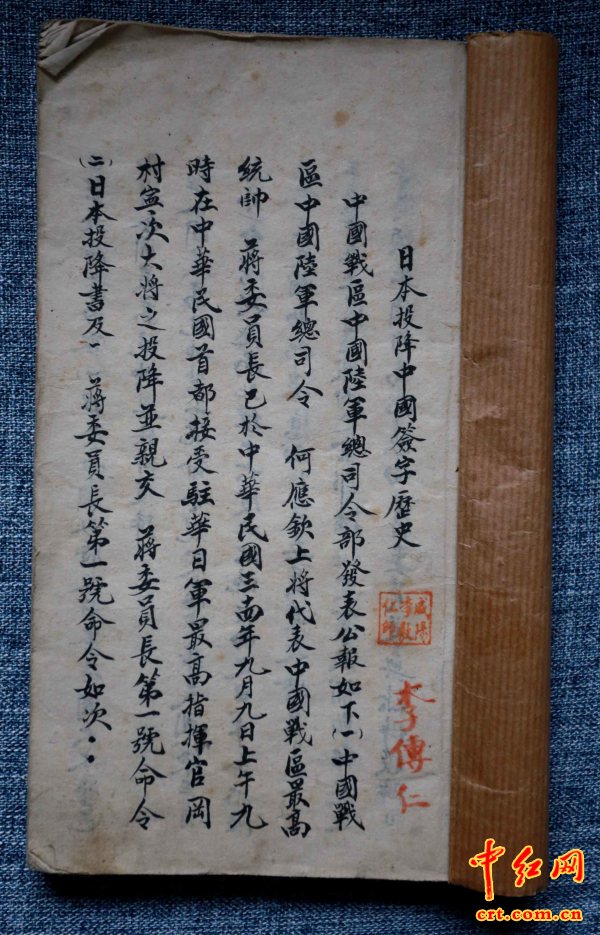 日本投降中國簽字歷史
中國戰區中國陸軍總司令部發表公報如下(一)中國戰
區中國陸軍總司令 何應欽上將代表中國戰區最高
統帥 蔣委員長已於中華民國三十四年九月九日上午九
時在中華民國首都接受駐華日軍最高指揮官岡
村寧次大將之投降並親交 蔣委員長第一號命令
(二)日本投降書及、 蔣委員長第一號命令如次··
李傳仁
中红网
crt.com.cn